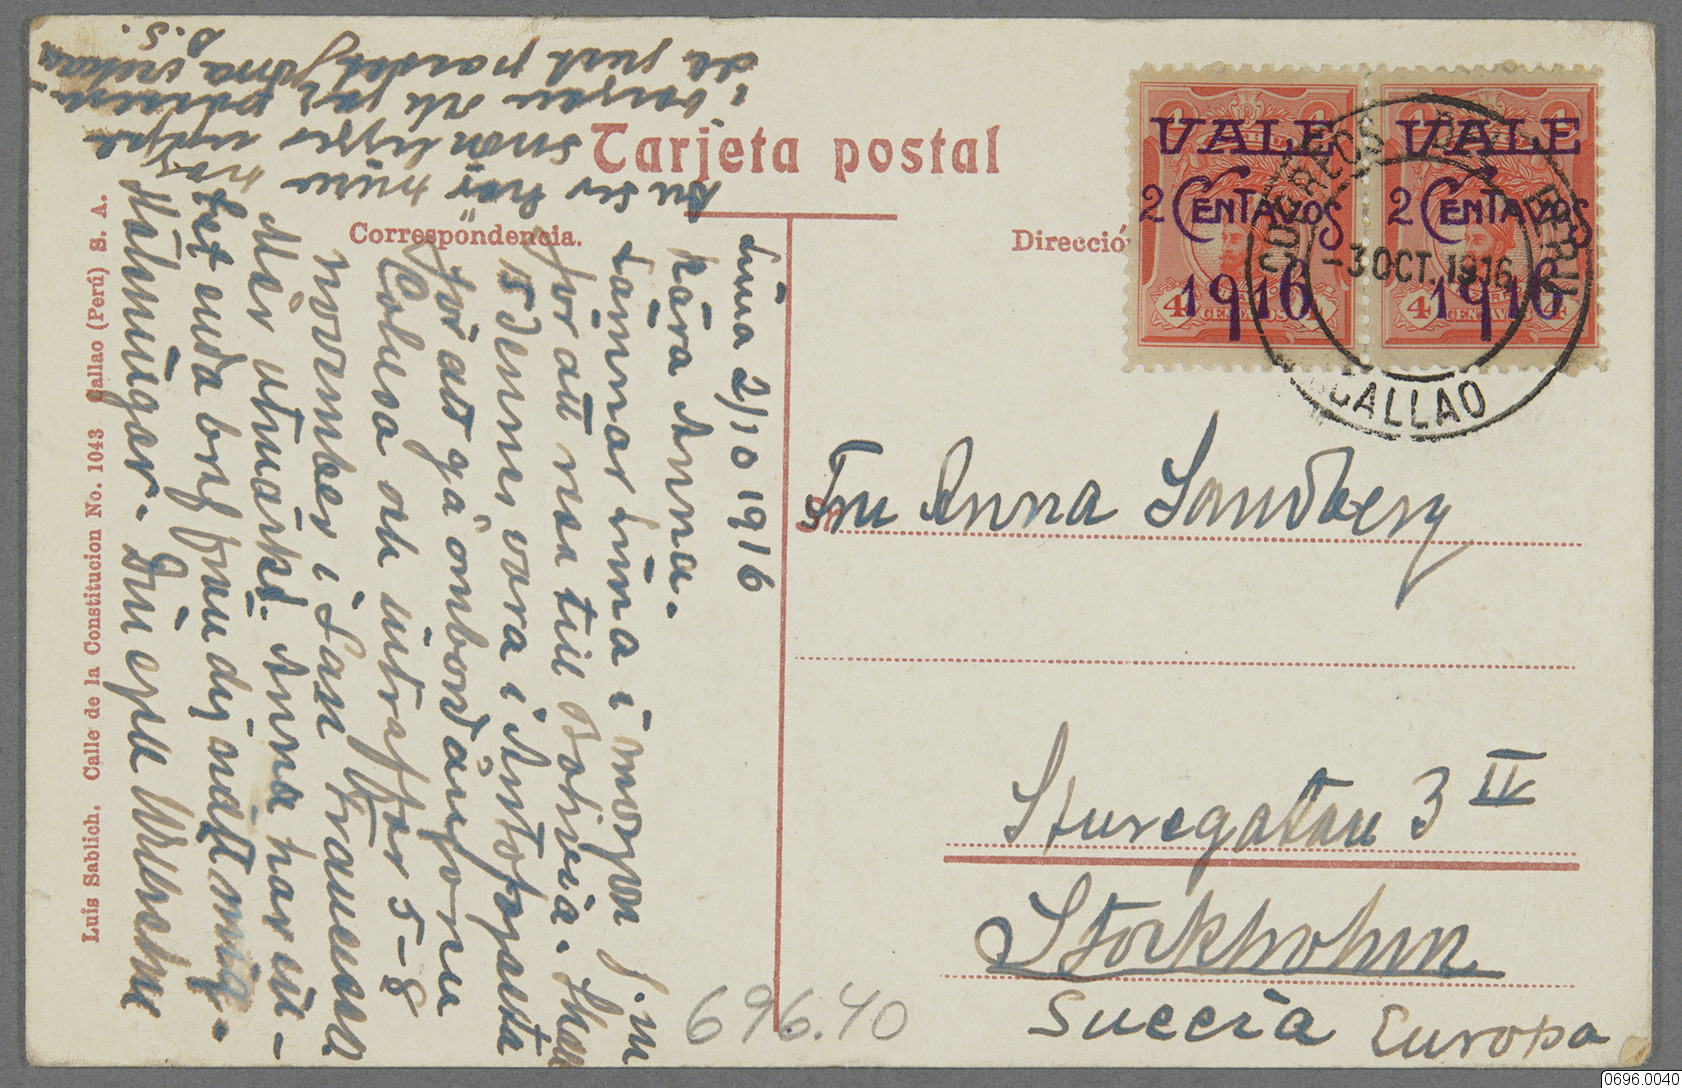 Tarjeta postal
Correspondencia.
Dirección
VALE
2 CENTAVOS
1916
VALE
2 CENTAVOS
1916
CORREOS DEL PERU
-3 OCT. 1916
CALLAO
Lima 2/10 1916
Kära Anna.
Lämnar Lima i morgon f.m
för att resa till Bolivia. Skall
15 dennes vara i Antofagasta
för att gå ombord ångfaren
Colusa och inträffar 5-8
november i San Francisco
Mår utmärkt. Anna har in-
tet enda bref från dig nått mig.
Hälsningar. Din egen
Du ser här huru
smån ligger
i bergen och
då
D.S.
Fru Anna Sandberg
Sturegatan 3 IV
Stockholm
Suecia Europa
Luis Sablich. Calle de la Constitucion No. 1043 Callao (Perú) S. A.
696.40
0696.0040